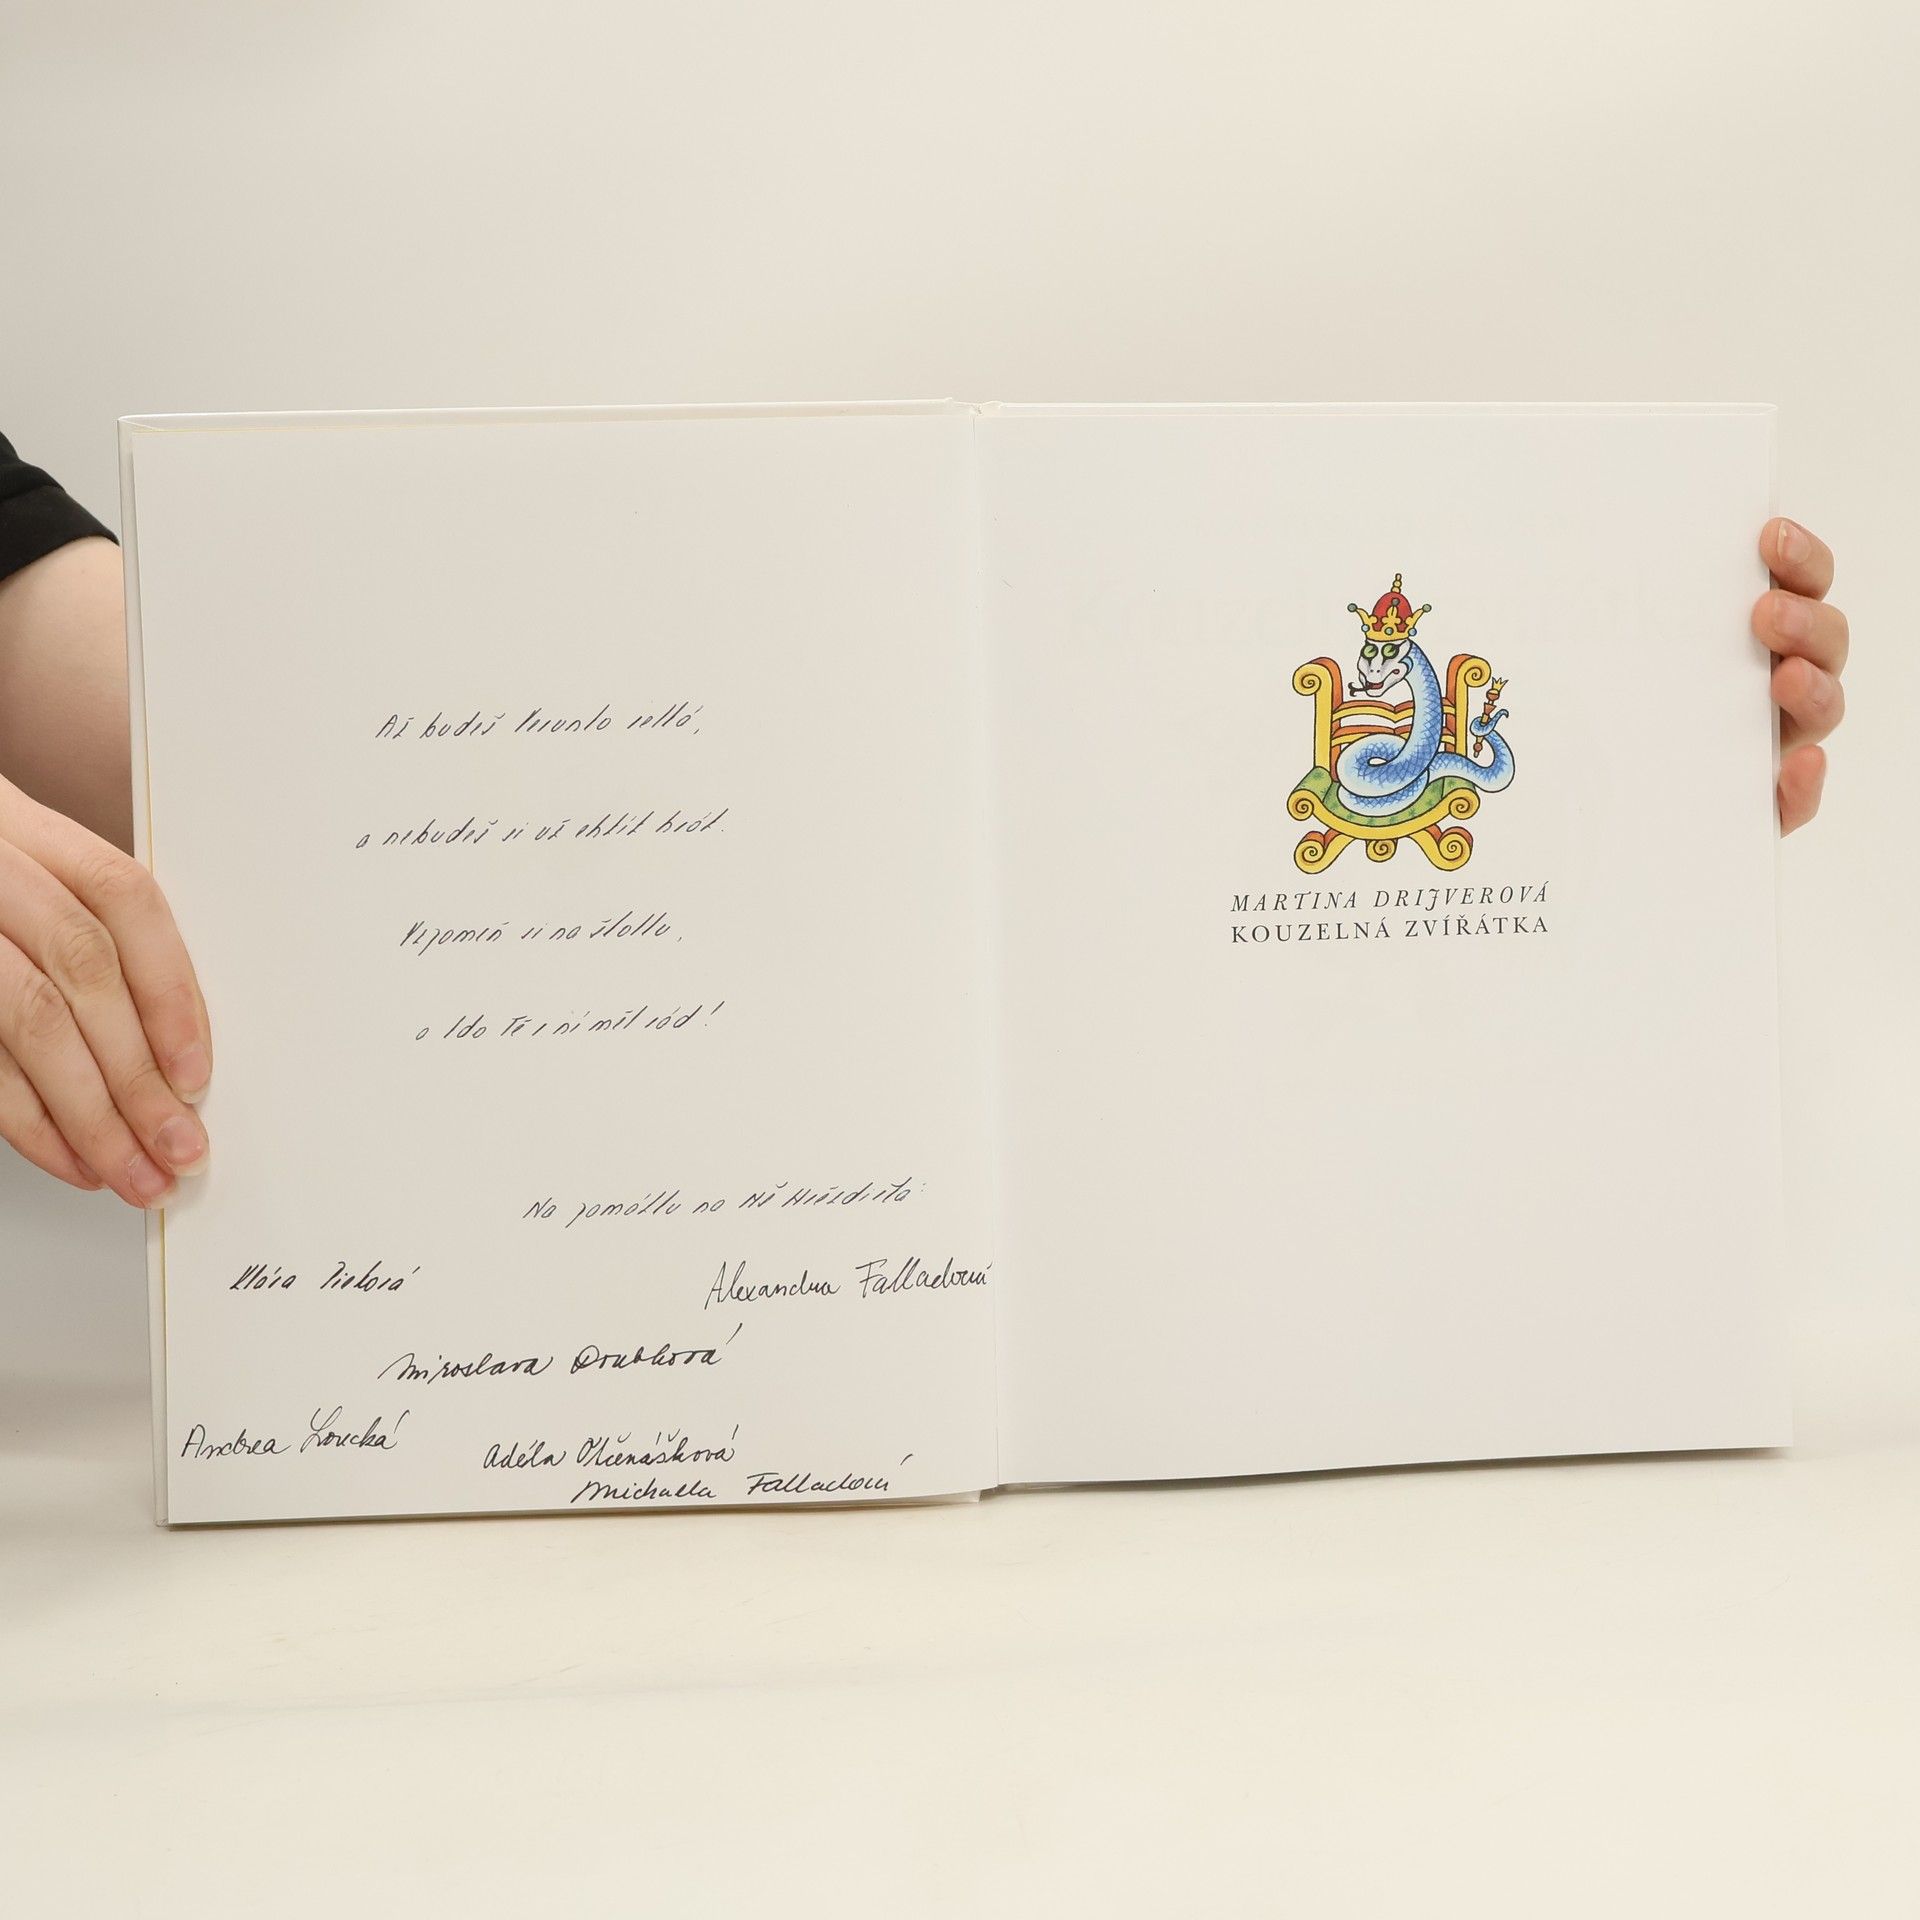 Až budeš Verunko velká,
a nebudeš si už chtít hrát.
Vzpomeň si na školku,
a kdo Tě v ní měl rád!
Na památku na MŠ Hvězdička:
Klára
Alexandra Falladová
Miroslava Drubková
Andrea Loucká
Adéla Otčenášková
Michaela Falladová
MARTINA DRIJVEROVÁ
KOUZELNÁ ZVÍŘÁTKA